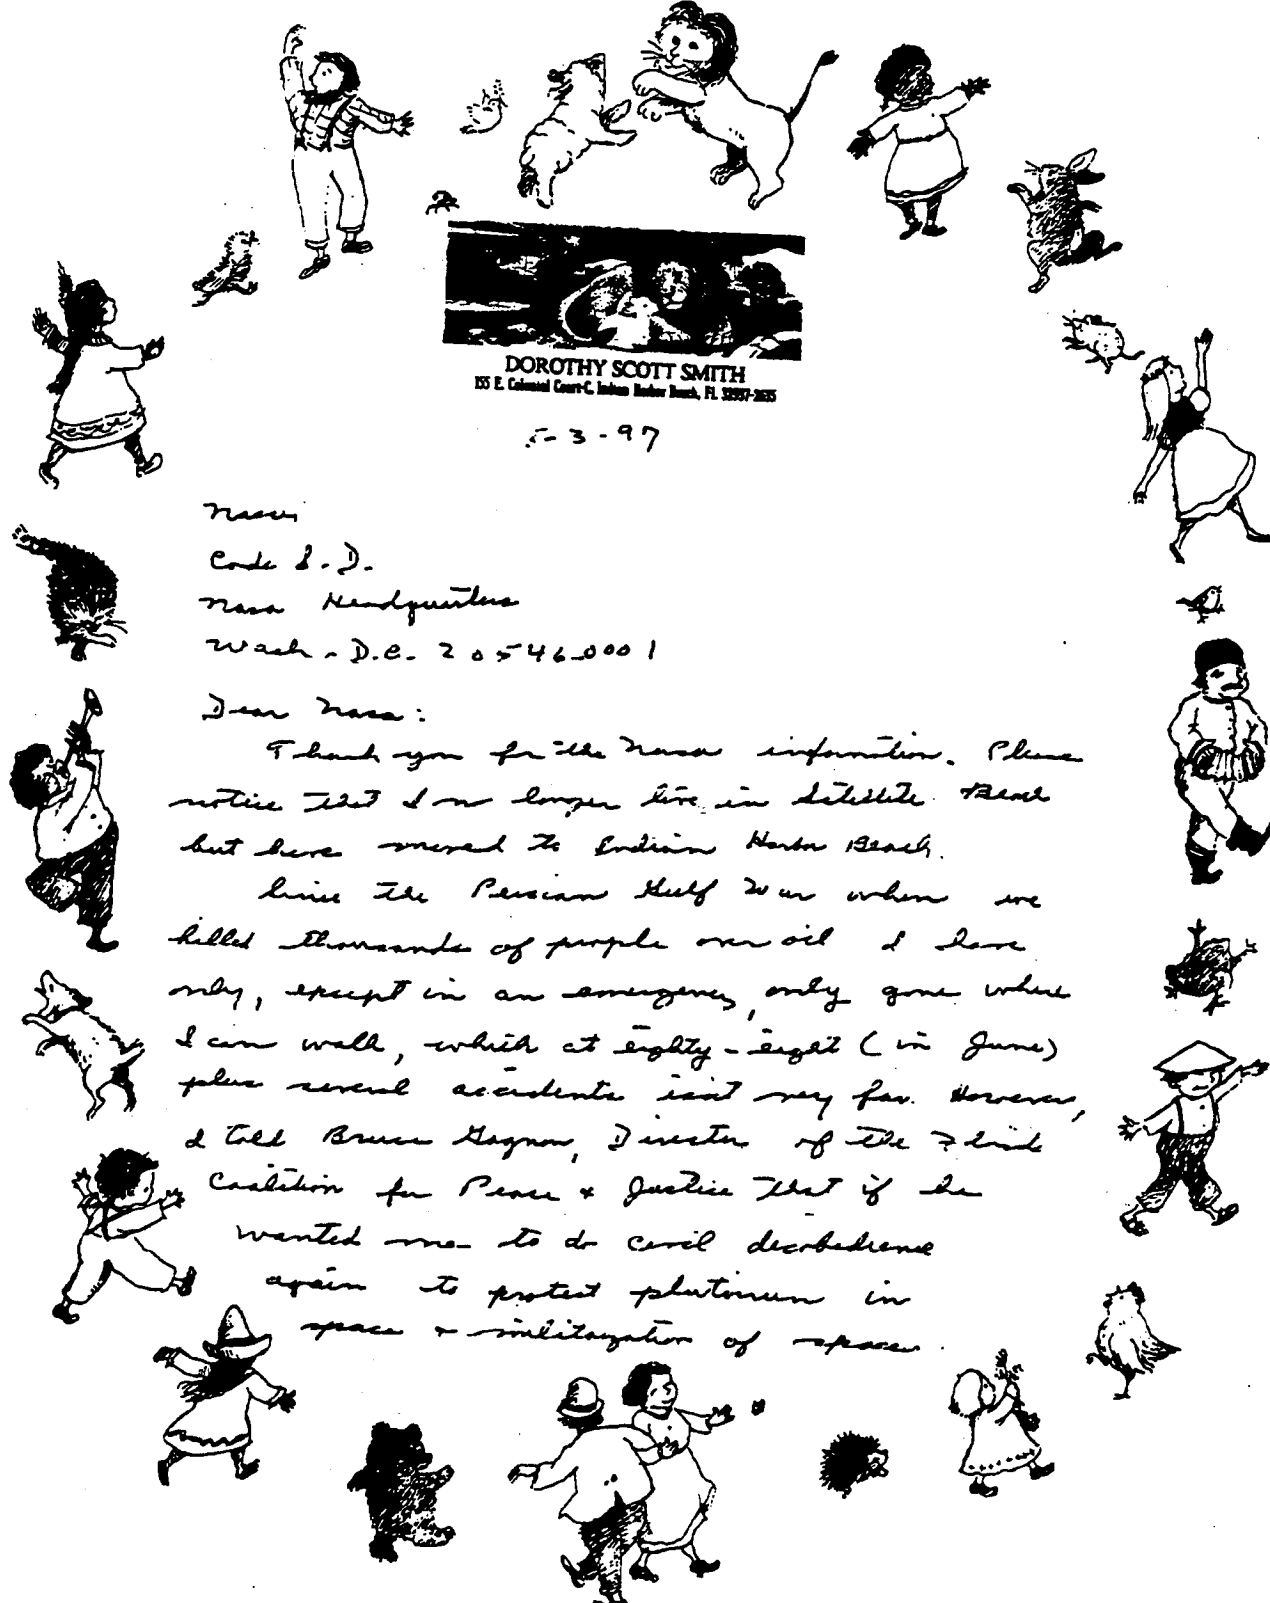 DOROTHY SCOTT SMITH
155 E. Colonial Court-C, Indian Harbor Beach, FL 32937-2635
5-3-97
Nasa
Code S.D.
Nasa Headquarters
Wash. D.C. 20546-0001
Dear Nasa:
Thank you for the Nasa information. Please
notice that I no longer live in Satellite Beach
but have moved to Indian Harbor Beach.
Since the Persian Gulf War when we
killed thousands of people over oil I have
only, except in an emergency, only gone where
I can walk, which at eighty-eight (in June)
plus several accidents isn't very far. However,
I told Bruce Gagnon, Director of the Florida
Coalition for Peace & Justice that if he
wanted me to do civil disobedience
again to protest plutonium in
space & militarization of space